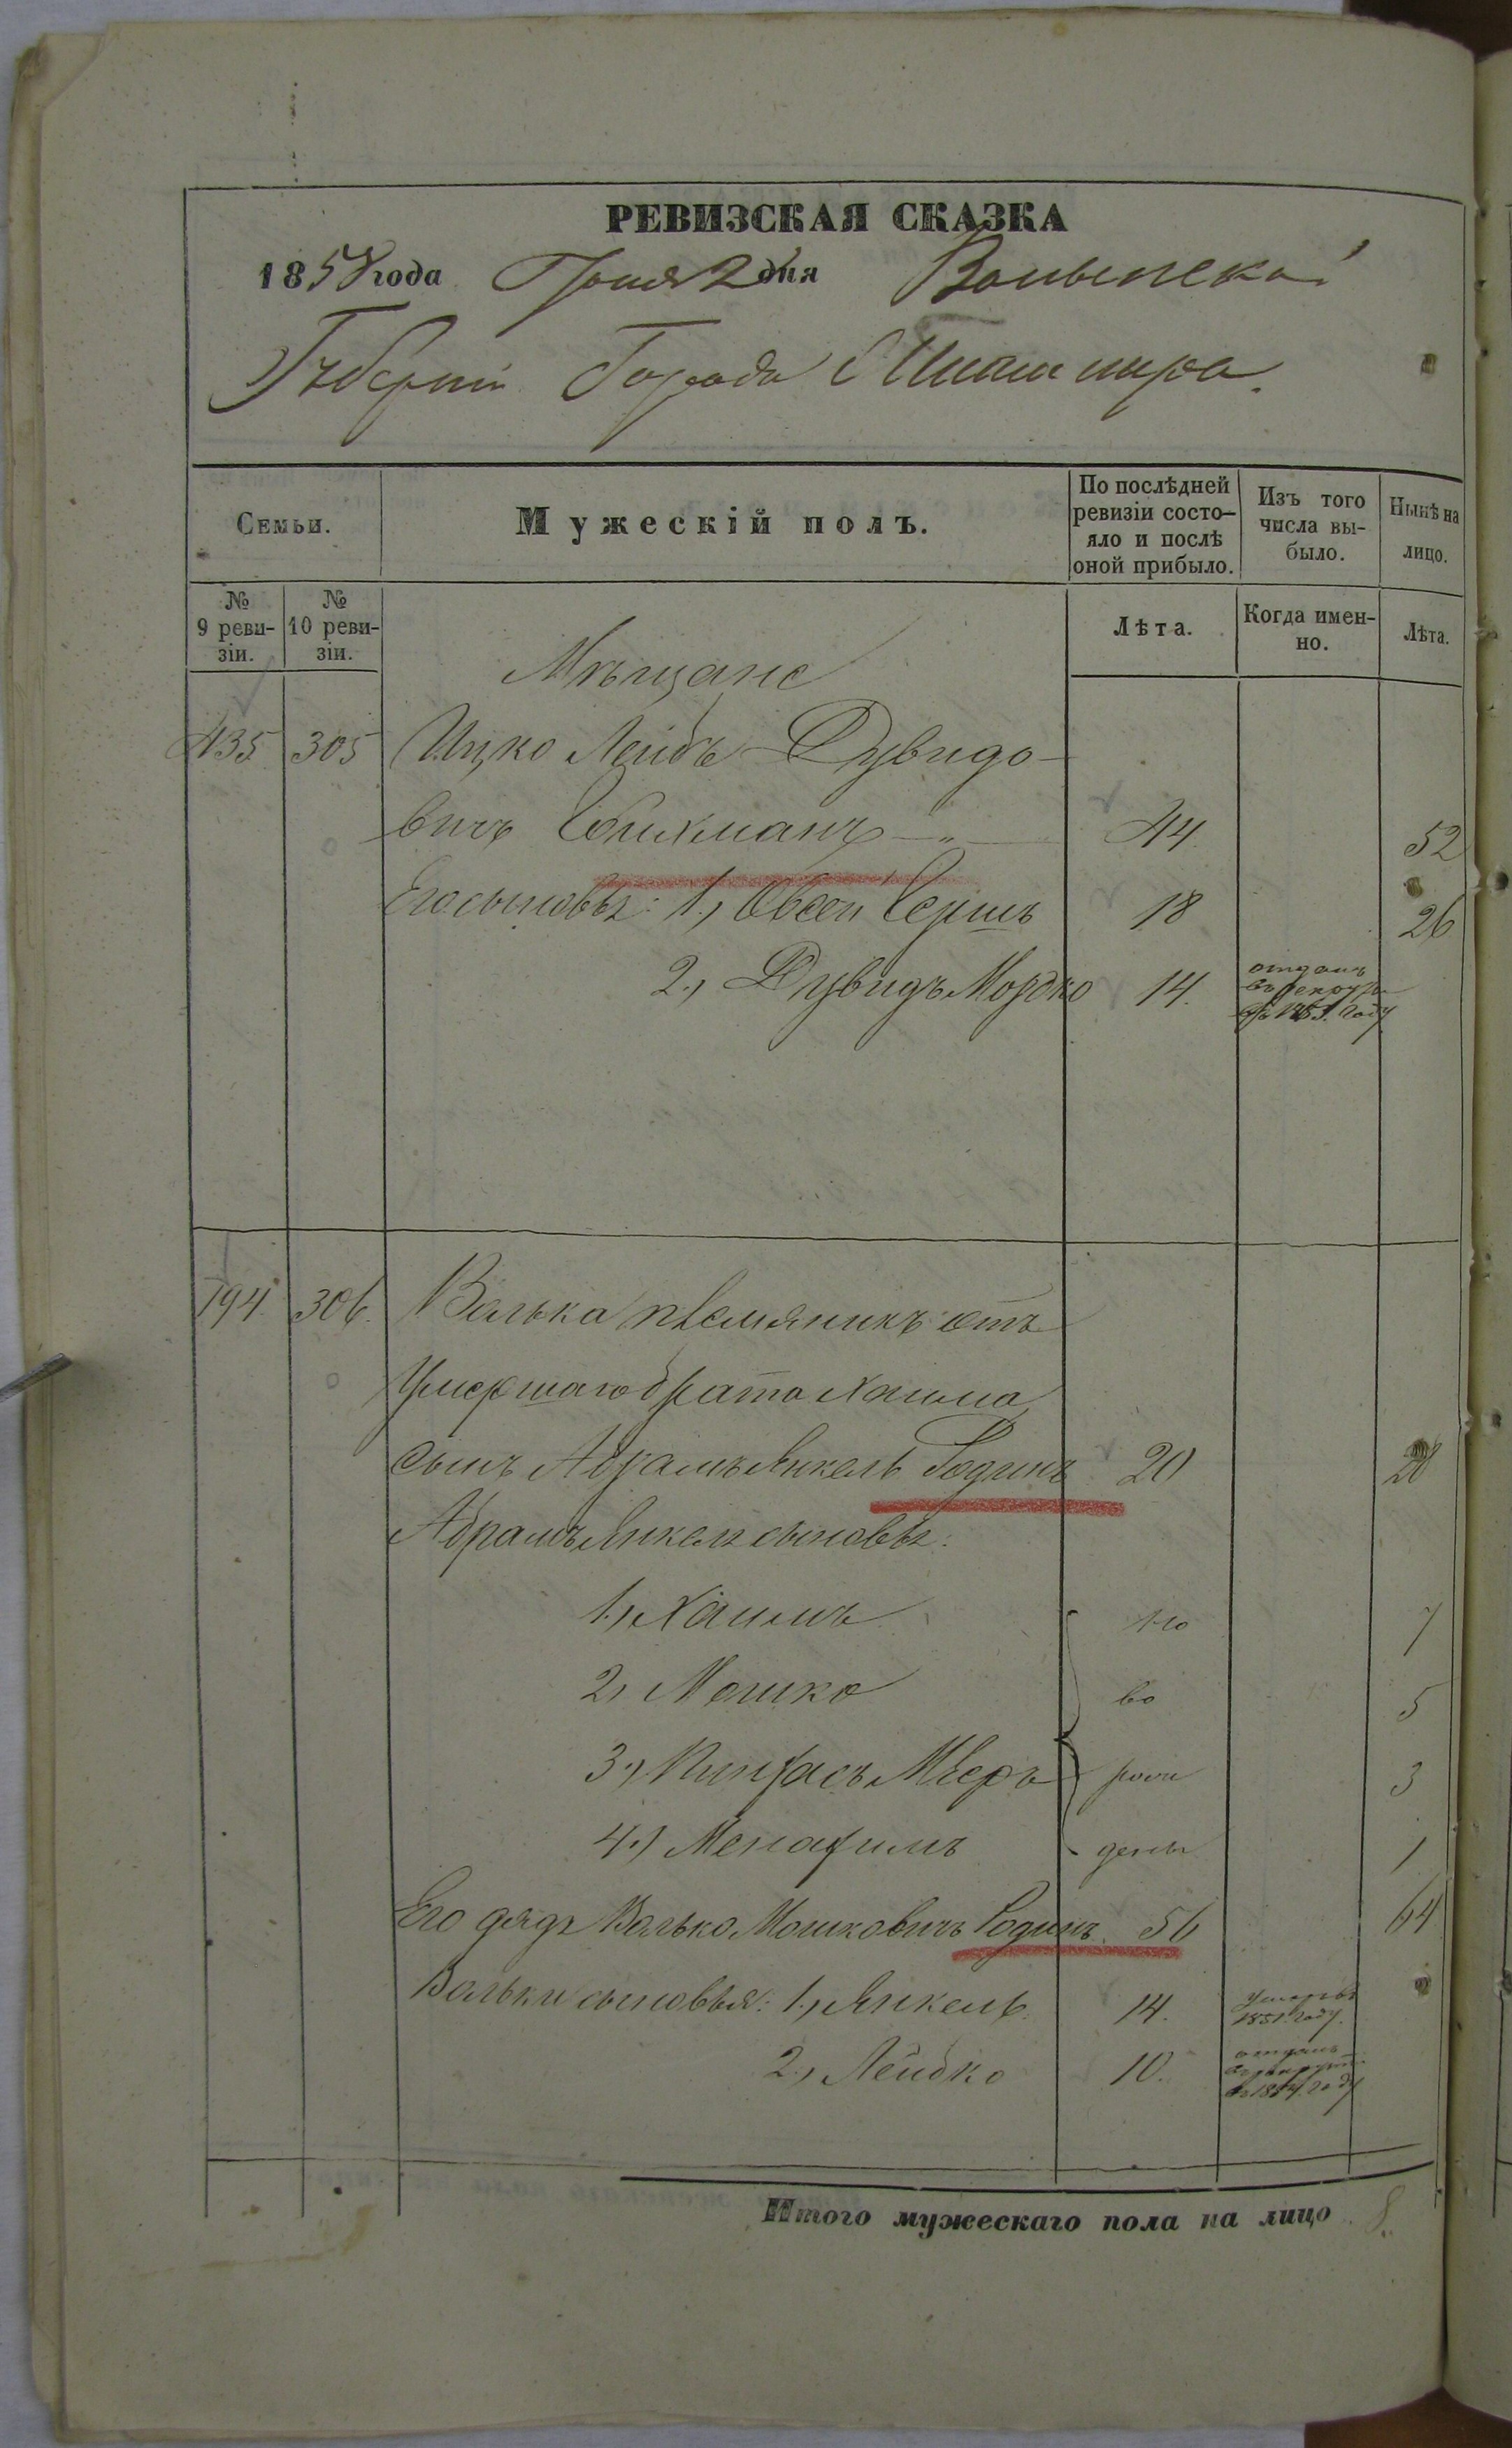 РЕВИЗСКАЯ СКАЗКА
1858 года Іюня 2 дня Волынской
Губерніи Города Житомира.
Семьи.
Мужескій полъ.
По послѣдней ревизіи состо-
яло и послѣ оной прибыло.
Изъ того числа вы-
было.
Нынѣ на лицо.
№ 9 реви-
зіи.
№ 10 реви-
зіи.
Лѣта.
Когда имен-
но.
Лѣта.
Мѣщане
435 305 Ицко Лейбъ Дувидо-
вичъ 44 52
Его сыновья: 1., Овсей Гершъ 18 26
2., Дувидъ Мордко 14. отданъ
въ рекруты
въ 1851. году
194. 306. Волька племяникъ отъ
Умершаго брата Хаима
сынъ Абрамъ Янкель Годинъ 20 28
Абрамъ Янкеля сыновья:
1., Хаимъ но 7
2., Мошко во 5
3., Пинхасъ Мееръ рож 3
4.) Менахимъ дены 1
Его дядя Волько Мошковичъ Годинъ. 56 64
Вольки сыновья: 1., Янкель 14. умеръ въ
1851. году.
2., Лейбко 10. отданъ
въ рекруты
въ 1854. году
Итого мужескаго пола на лицо 8.